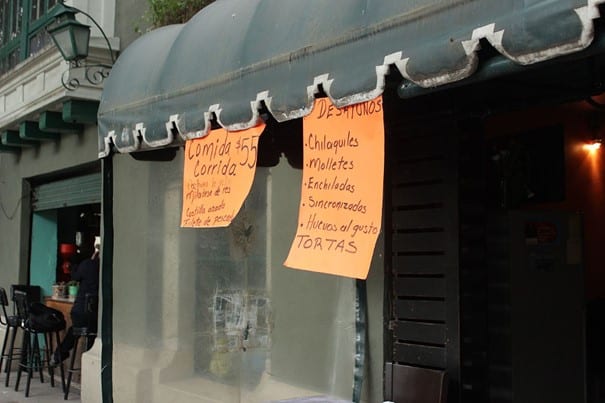 Comida $55
Corrida
Milanesa de res
Costilla asada
Filete de pescado
DESAYUNOS
• Chilaquiles
• Molletes
• Enchiladas
• Sincronizadas
• Huevos al gusto
TORTAS